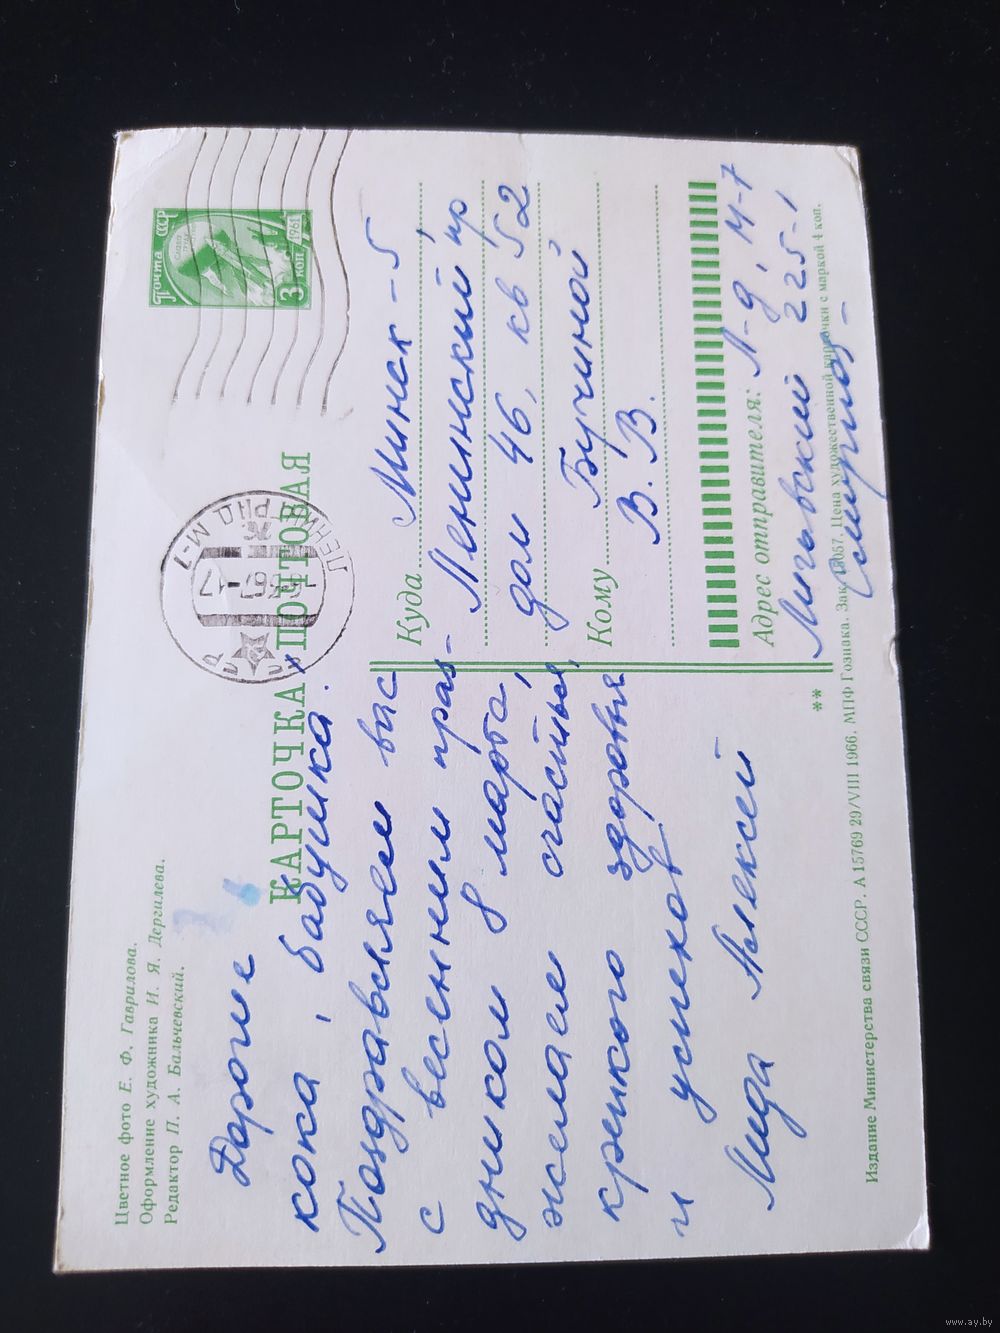 Цветное фото Е. Ф. Гаврилова.
Оформление художника И. Я. Дергилева.
Редактор П. А. Бальчевский.
КАРТОЧКА ПОЧТОВАЯ
Почта СССР
3 коп.
1961
ЛЕНИНГРАД М-7
Дорогие
кока, бабушка.
Поздравляем вас
с весенним праз-
дником 8 марта,
желаем счастья,
крепкого здоровья
и успехов
Лида Алексей
Куда Минск-5
Ленинский пр
дом 46, кв 52
Кому Бучиной
В. В.
Адрес отправителя: Л-д, М-7
225-1
Смирнов
**
Издание Министерства связи СССР. А 15769 29/VIII 1966. МПФ Гознака. Зак. Цена художественной карточки с маркой 4 коп.
www.ay.by